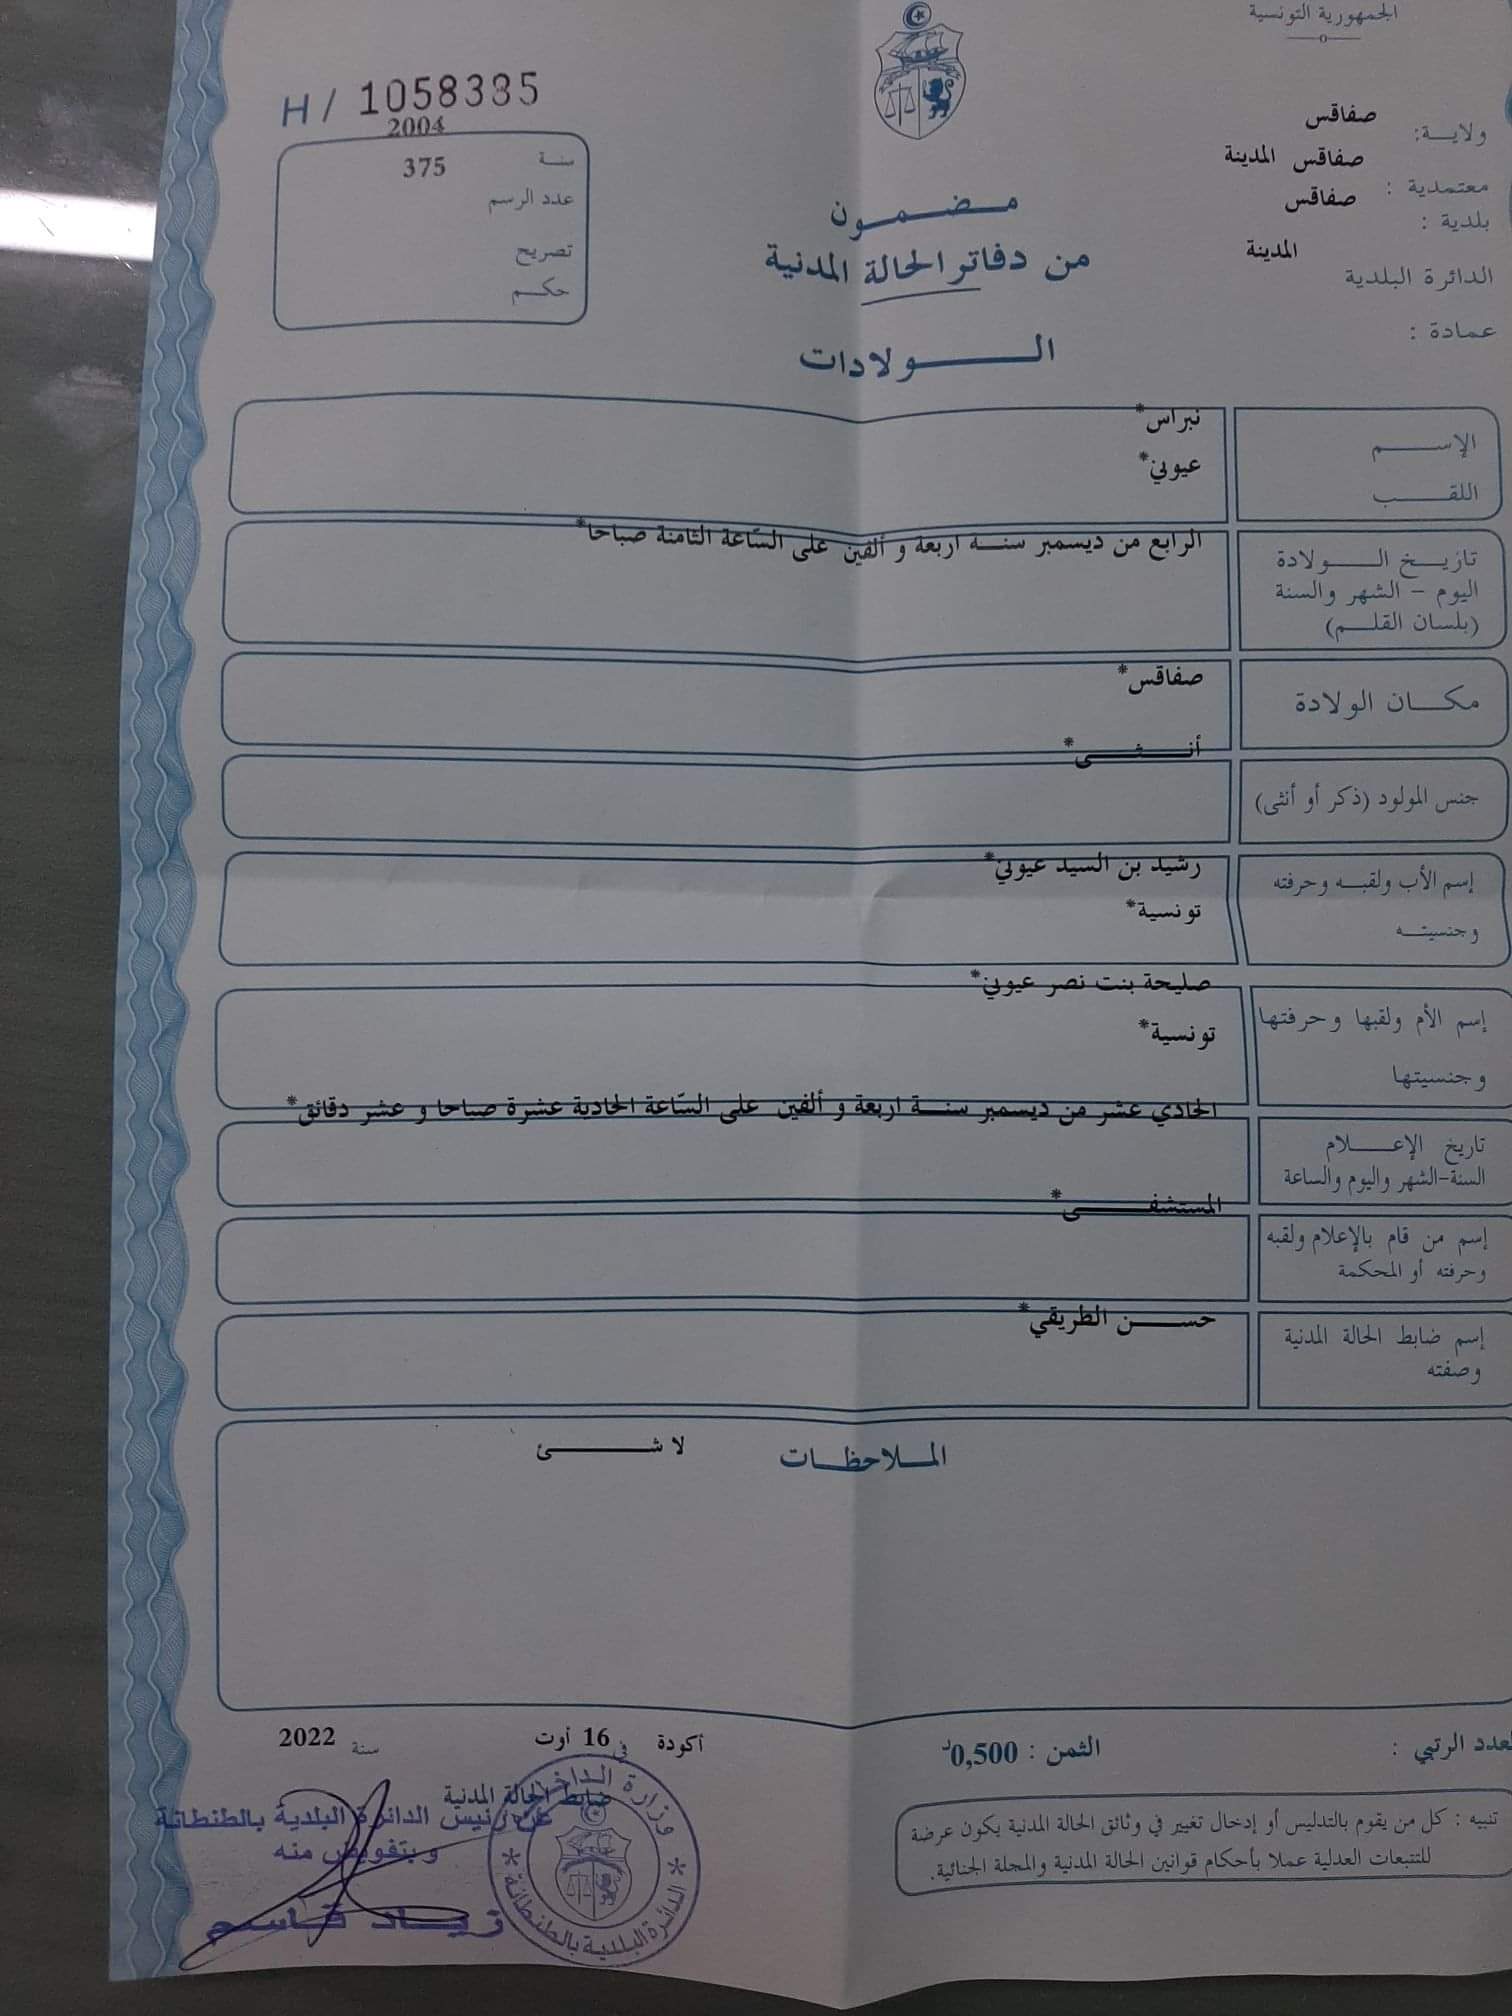 الجمهورية التونسية
ولايـــة: صفاقس
معتمدية : صفاقس المدينة
بلدية : صفاقس
الدائرة البلدية المدينة
عمادة :
H/ 1058335
سنة 2004
عدد الرسم 375
تصريح
حكم
مضمون
من دفاتر الحالة المدنية
الولادات
الإســـم نبراس*
اللقـــب عيوني*
تاريــخ الــولادة
اليوم – الشهر والسنة
(بلسان القلــم)
الرابع من ديسمبر سنـة اربعة و ألفين على السّاعة الثامنة صباحا*
مكــان الولادة صفاقس*
جنس المولود (ذكر أو أنثى) أنـــثـــى*
إسم الأب ولقبــه وحرفته رشيد بن السيد عيوني*
وجنسيتــه تونسية*
إسم الأم ولقبها وحرفتها صليحة بنت نصر عيوني*
وجنسيتها تونسية*
تاريخ الإعـــلام
السنة-الشهر واليوم والساعة
الحادي عشر من ديسمبر سنـة اربعة و ألفين على السّاعة الحادية عشرة صباحا و عشر دقائق*
إسم من قام بالإعلام ولقبه
وحرفته أو المحكمة
المستشفـــى*
إسم ضابط الحالة المدنية
وصفته
حســـن الطريقي*
المـلاحظـات لا شـــئ
العدد الرتبي :
الثمن : 0,500د
أكودة في 16 أوت سنة 2022
ضابط الحالة المدنية
عن رئيس الدائرة البلدية بالطنطانة
وبتفويض منه
زيـاد قـاسم
وزارة الداخلية
* الدائرة البلدية بالطنطانة *
تنبيه : كل من يقوم بالتدليس أو إدخال تغيير في وثائق الحالة المدنية يكون عرضة
للتتبعات العدلية عملا بأحكام قوانين الحالة المدنية والمجلة الجنائية.